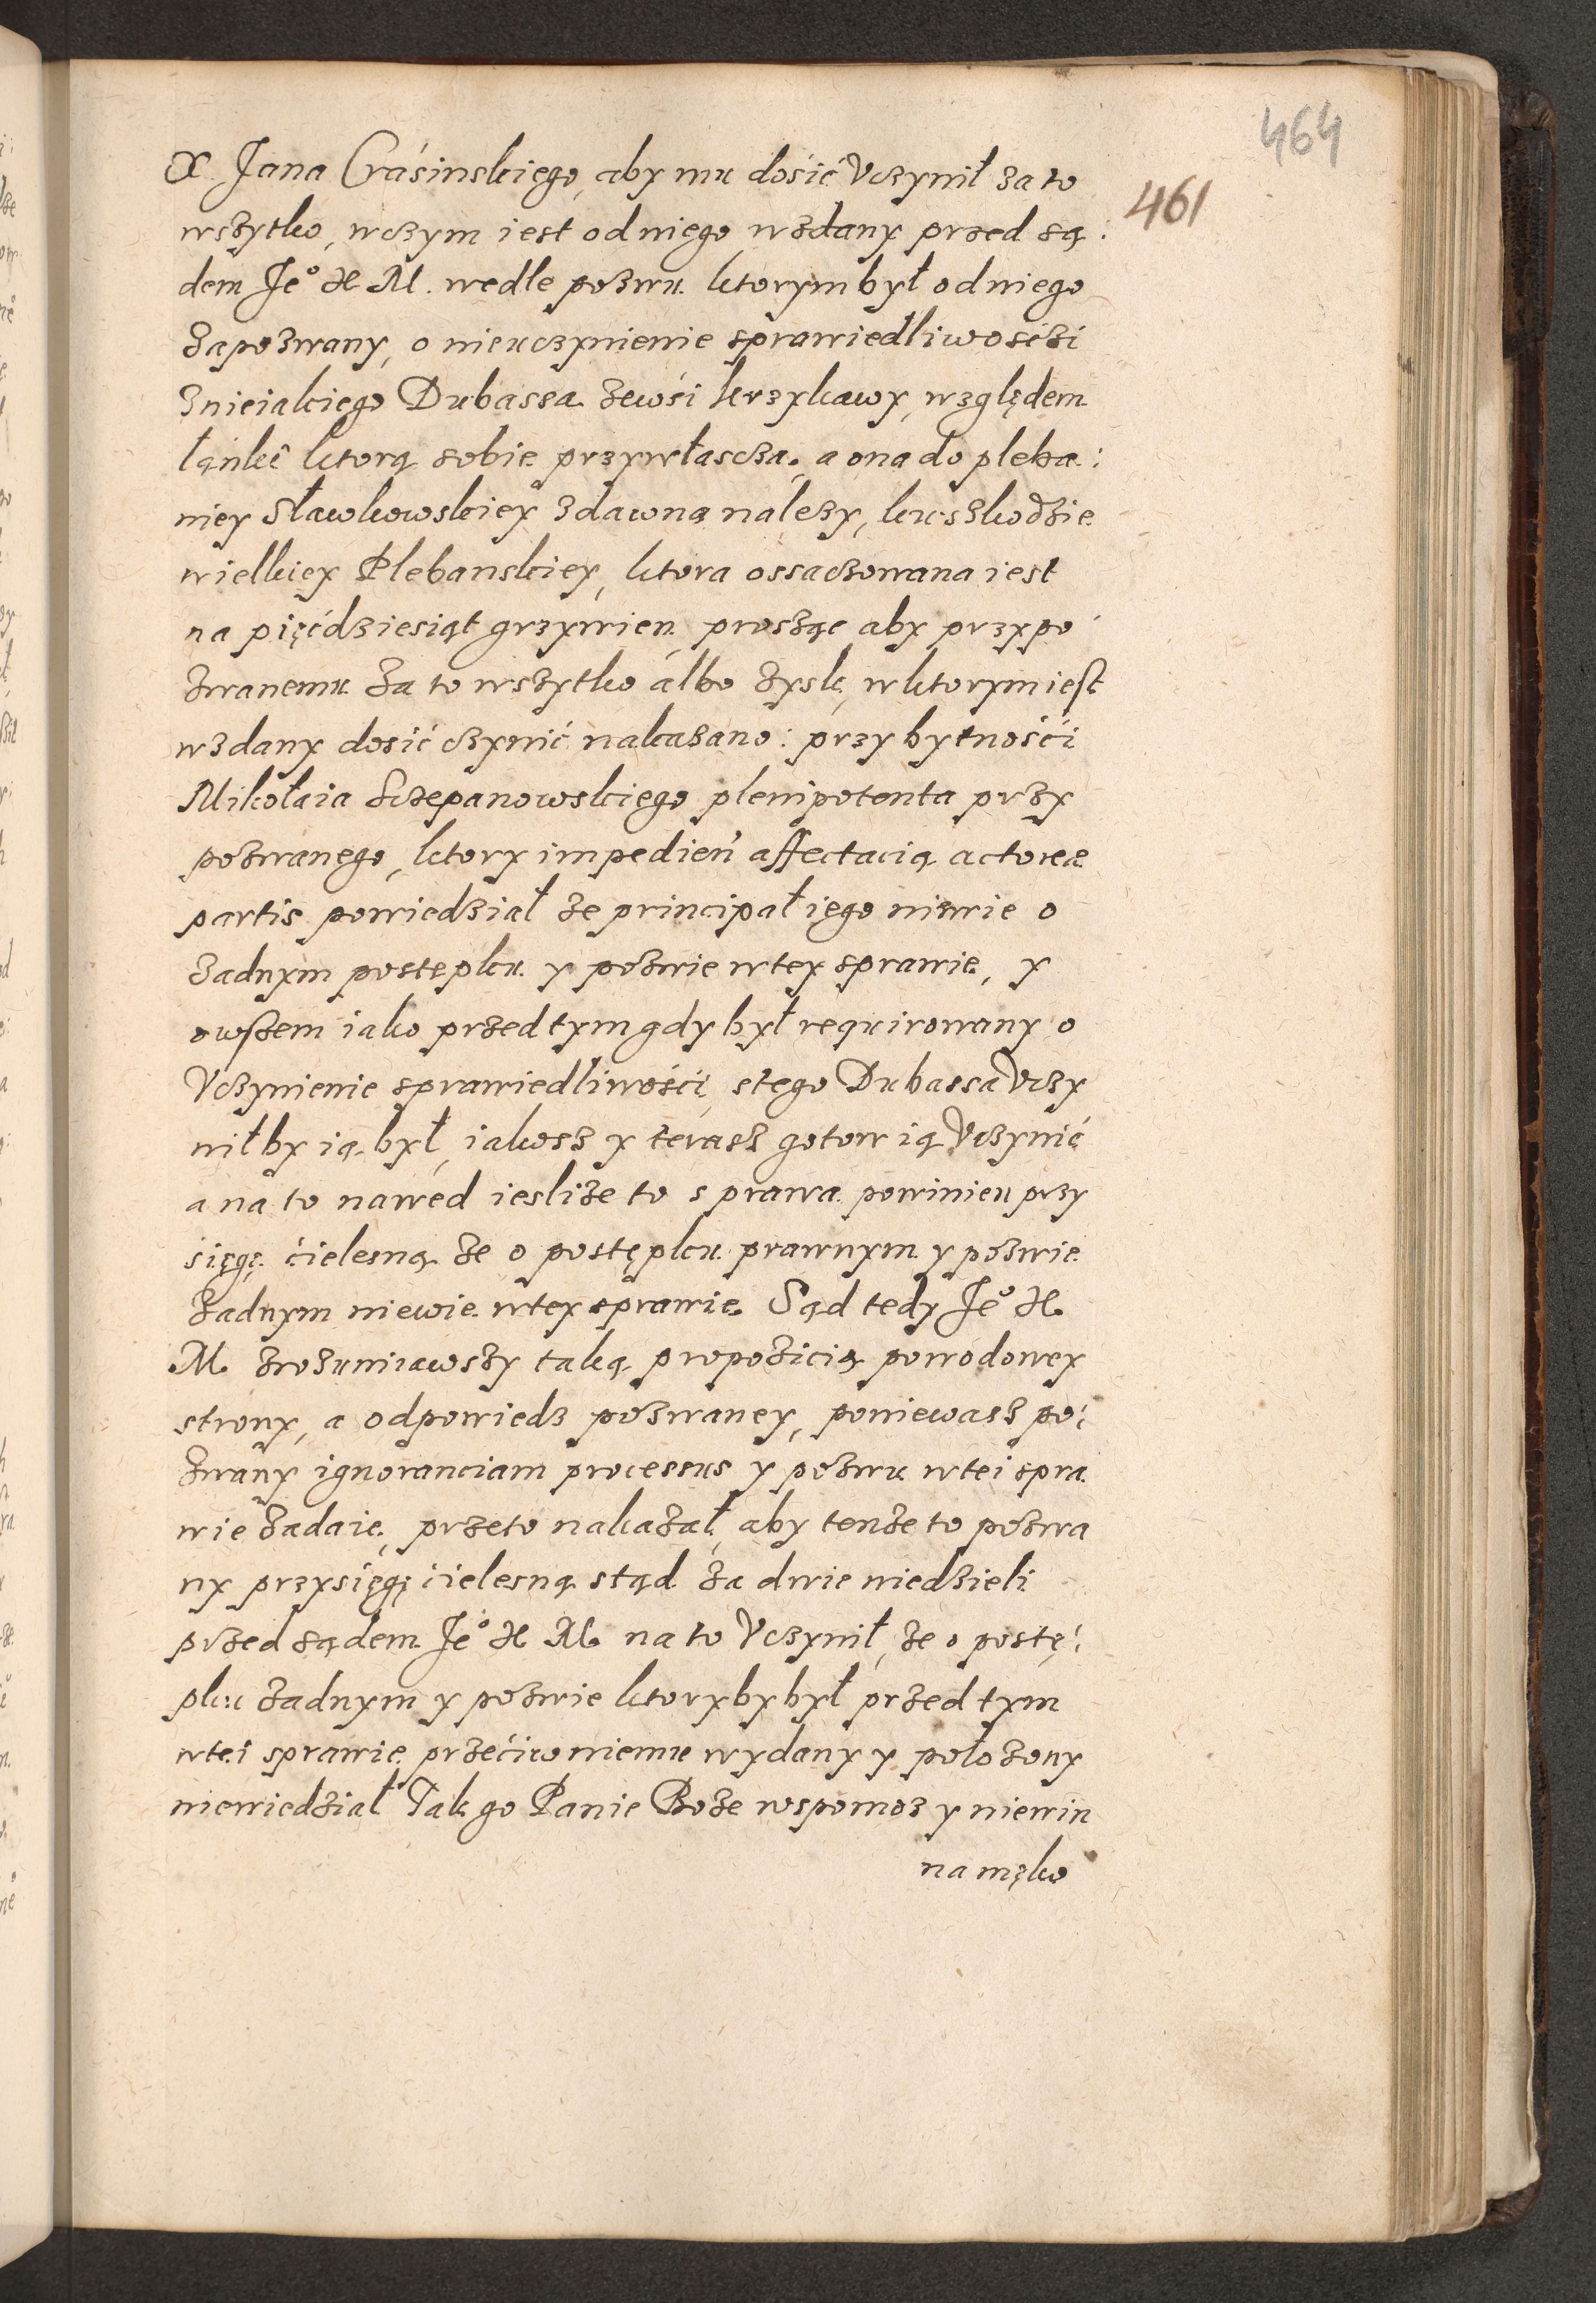 464
461
X. Jana Crásinskiego, aby mu dosić Vczynił za to
wszytko, wczym iest od niego wzdany przed są:
dem Jeº K M. wedle pozwu. ktorym był od niego
zapozwany, o nieuczynienie sprawiedliwośćzi
znieiakiego Dubassa zewśi krzykawy, względem
łąnki ktorą sobie przywłascza, a ona do pleba:
niey Sławkowskiey zdawna należy, kuszkodzie
wielkiey Plebanskiey, ktora ossaczowana iest
na pięćdziesiąt grzywien, prosząc aby przypo
zwanemu za to wszytko álbo zysk, w ktorym iest
wzdany dosić czynić nakazano: przy bytnośći
Mikołaia Sczepanowskiego plenipotenta przy
pozwanego, ktory impedień affectacią actoreæ
partis powiedział że principał iego niewie o
żadnym postepku y pózwie wtey sprawie, y
owszem iako przed tym gdy był requirowany o
Vczynienie sprawiedliwośći, stego Dubassa Vczy
niłby ią był, iakosz y terasz gotow ią Vczynić
a na to nawed iesliże to s prawa powinien przy
śięgę ćielesną że o postępku prawnym y pózwie
żadnym niewie wtey sprawie. Sąd tedy Jeº K.
M. zrozumiawszy taką propozicią powodowey
strony, a odpowiedz pózwaney, poniewasz po:
zwany ignoranciam processus y pózwu wtei spra
wie zadaie, przeto nakazał, aby tenże to pózwa
ny przysięgę ćielesną stąd za dwie niedzieli
przed sądem Jeº K M. na to Vczynił, że o postę:
pku żadnym y pózwie ktoryby był przed tym
wtei sprawie przećiwo niemu wydany y położony
niewiedział Tak go Panie Boże wspomoz y niewin
na męko